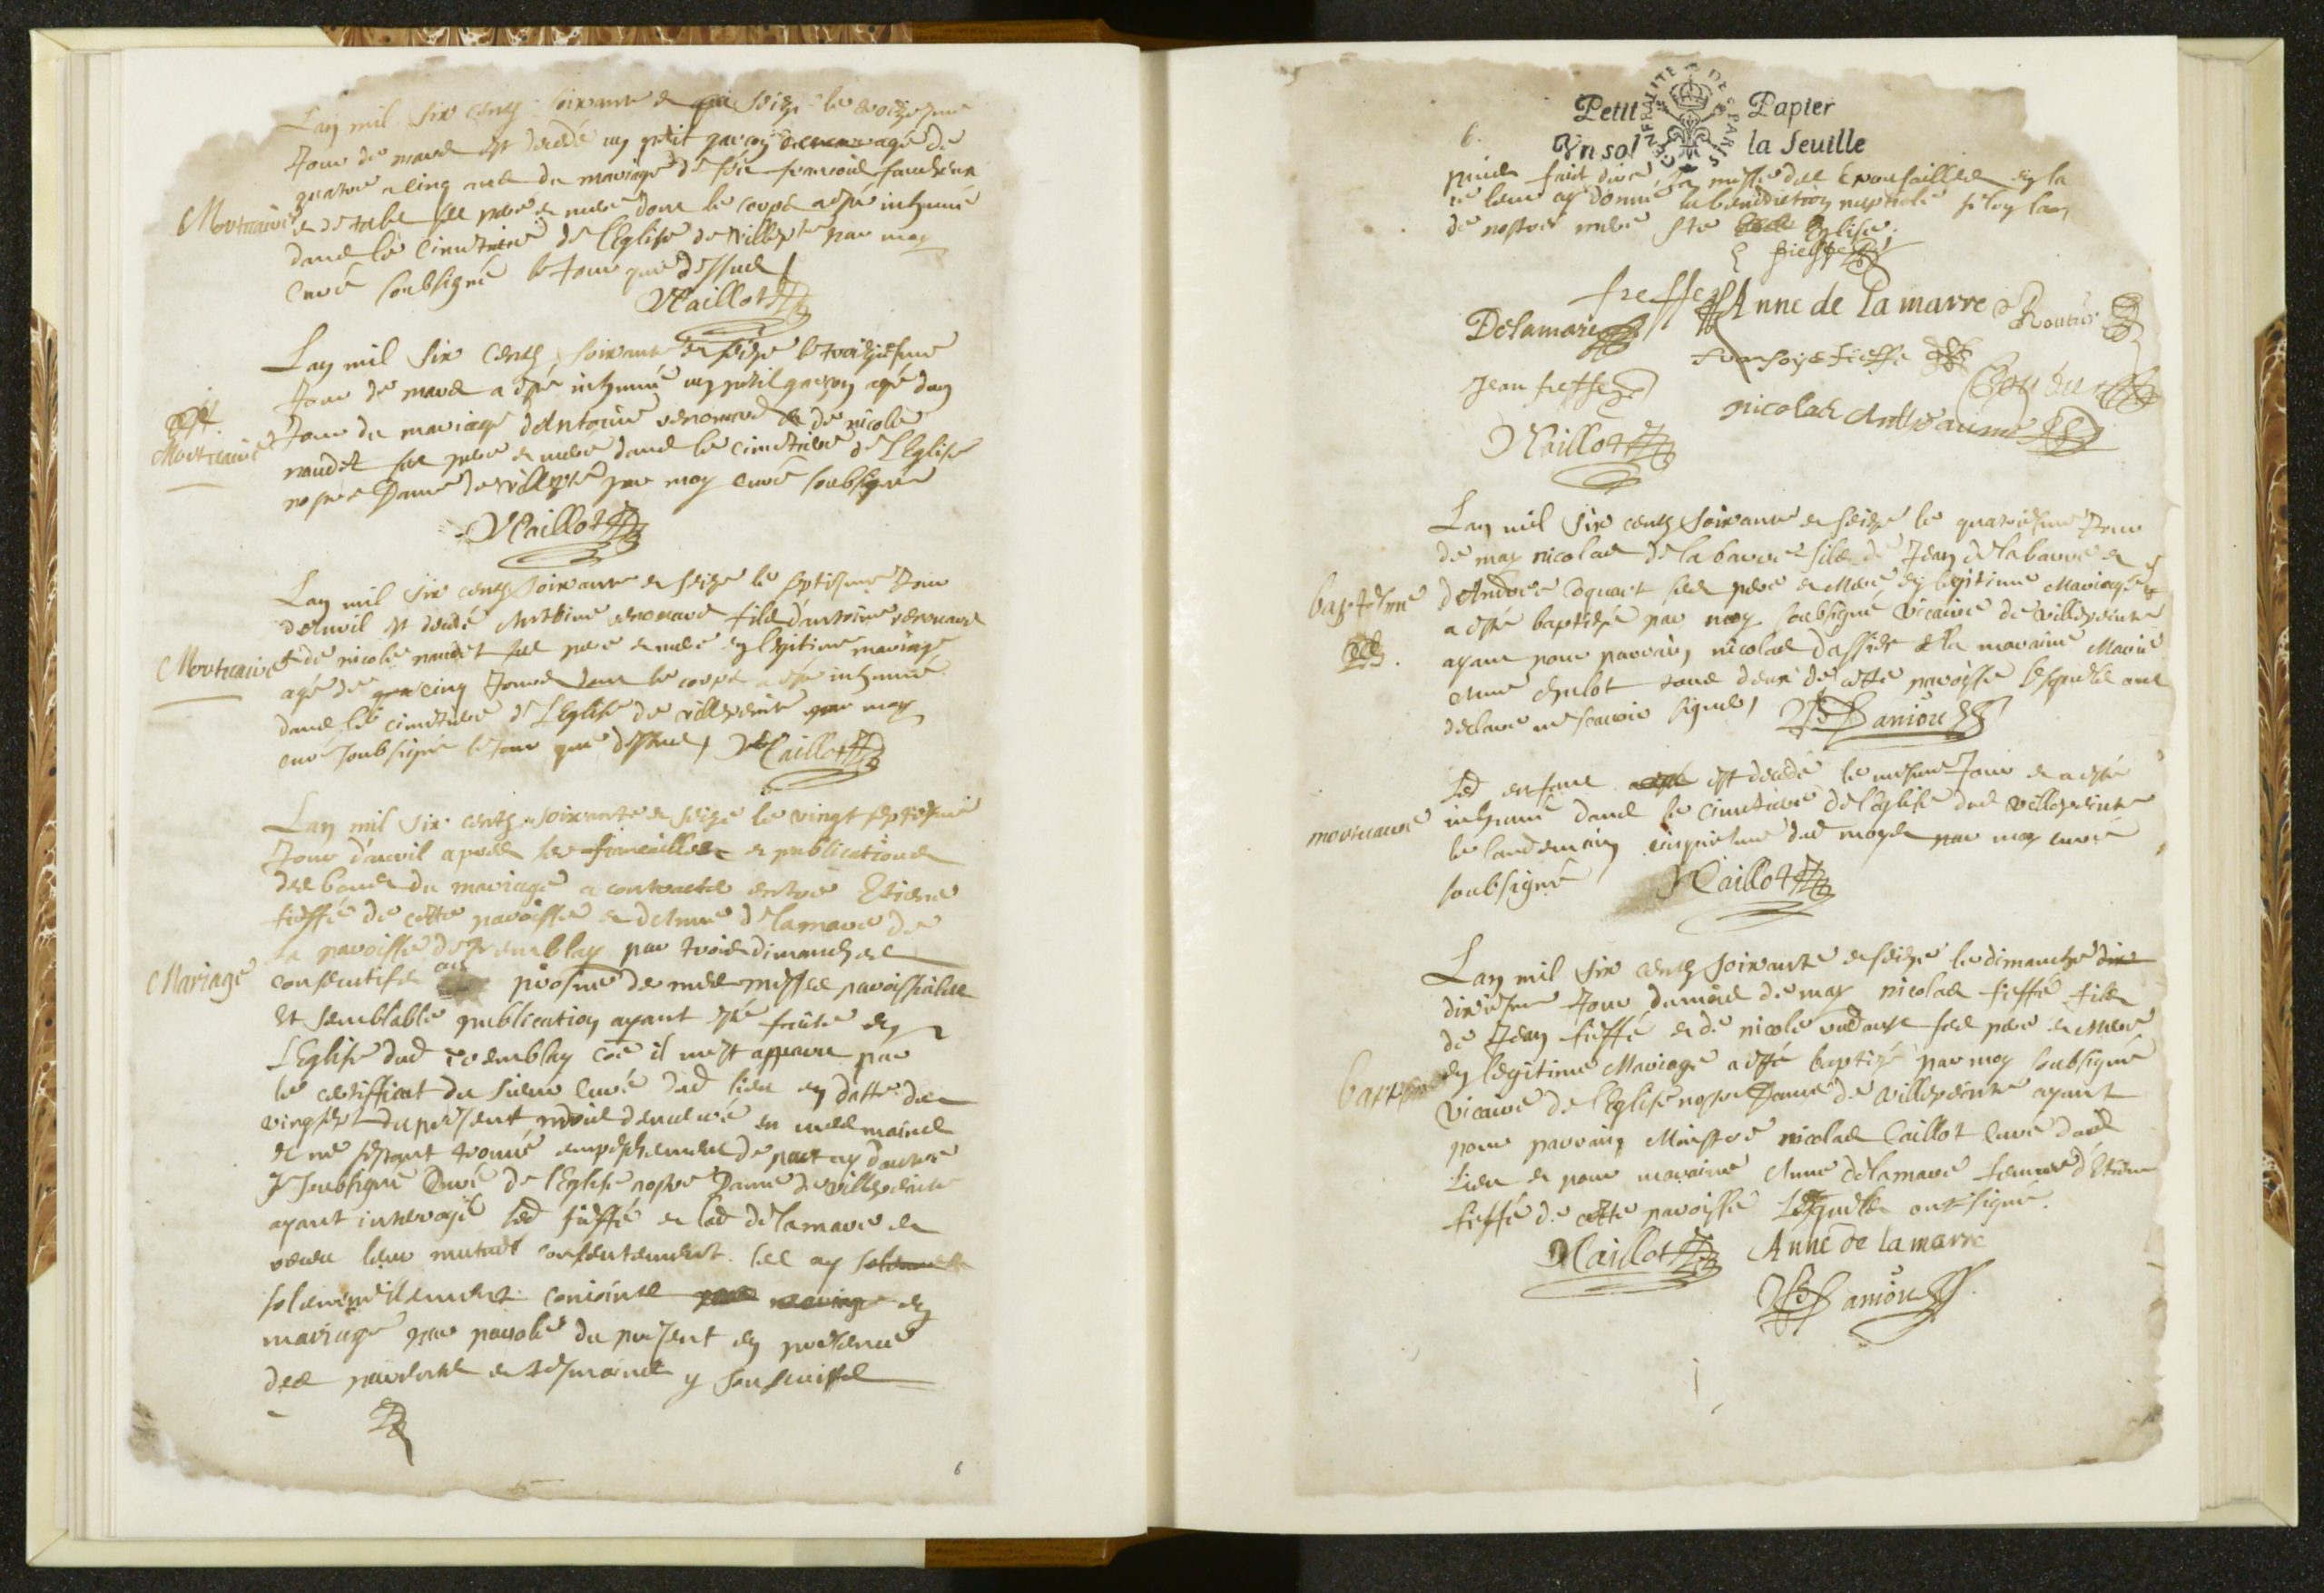 Lan mil six cents soixante et seize le troiziesme
Jour de mars est decedé un petit garçon agé de
quatre a cinq ans du mariage de feu francois
et de ses pere et mere dont le corps a esté inhumé
Mortuaire
dans le Cimetiere de l'Eglise de Villepte par moy
Curé soubsigné le Jour que dessus
NCaillot
Lan mil six cents soixante et seize le troiziesme
Jour de mars a esté inhumé un petit garçon agé dun
Jour du mariage d'Antoine renouard et de nicole
Mortuaire
naudet ses pere et mere dans le cimetiere de l'Eglise
nostre Dame de villepte par moy curé soubsigné
NCaillot
Lan mil six cents soixante et seize le septiesme Jour
d'Avril est decedé Anthoine renouard fils d'antoine renouard
Mortuaire
et de nicole naudet ses pere et mere en legitime mariage
agé de cinq Jours dont le corps a esté inhumé
dans le cimetiere de l'Eglise de villepeinte par moy
curé soubsigné le Jour que dessus NCaillot
Lan mil six cents soixante et seize le vingt septiesme
Jour d'avril apres les fiancailles et publications
des bans du mariage a contracter entre Etienne
fieffé de cette paroisse et d'Anne delamare de
la paroisse de Tremblay par trois dimanches
Mariage
consecutifs aux prosnes de nos messes paroissiales
Et semblable publication ayant esté faite en
l'Eglise dud tremblay coe il mest apparu par
le certifficat du sieur Curé dud lieu en datte du
vingt du present mois demeuré en mes mains
et ne sestant trouvé empeschement de part ny d'autre
Je soubsigné Curé de l'Eglise nostre Dame de villepeinte
ayant interrogé led fieffé et lad delamare et
receu leur mutuel consentement les ay
solemnellement conioints en
mariage par parole de present en presence
des parents et tesmoings y soubscrits
6
GEN PARIS
Petit Papier
6.
Vn sol la feuille
puis fait dire la messe des Epousailles en la
ie leur ay donné la benediction nuptiale selon
de nostre mere Ste Eglise.
E fieffe
freffe Anne de Lamarre
Delamare
fransois fieffe
Jean fieffe
nicolas Antheaume
NCaillot
Lan mil six cents soixante et seize le quatriesme Jour
de may nicolas de la barre fils de Jean de la barre et
baptesme
d'Andrée Coquart ses pere et Mere en legitime Mariage
a esté baptisé par moy soubsigné vicaire de villepeinte
ayant pour parrain nicolas dassier et la maraine Marie
Anne tous deux de cette paroisse lesquels ont
declaré ne scavoir signer,
Led enfant est decedé le mesme Jour et a esté
mortuaire
inhumé dans le cimetiere de l'Eglise dud villepeinte
le lendemain cinquiesme dud moys par moy curé
soubsigné NCaillot
Lan mil six cents soixante et seize le dimanche dix
dixiesme Jour du mois de may nicolas fieffé fils
de Jean fieffé et de nicole ses pere et Mere
baptesme
en legitime Mariage a esté baptizé par moy soubsigné
vicaire de l'Eglise nostre Dame de villepeinte ayant
pour parrain Maistre nicolas Caillot Curé dud
Lieu et pour maraine Anne delamare femme d'Etienne
fieffé de cette paroisse lesquels ont signé.
NCaillot Anne de lamarre